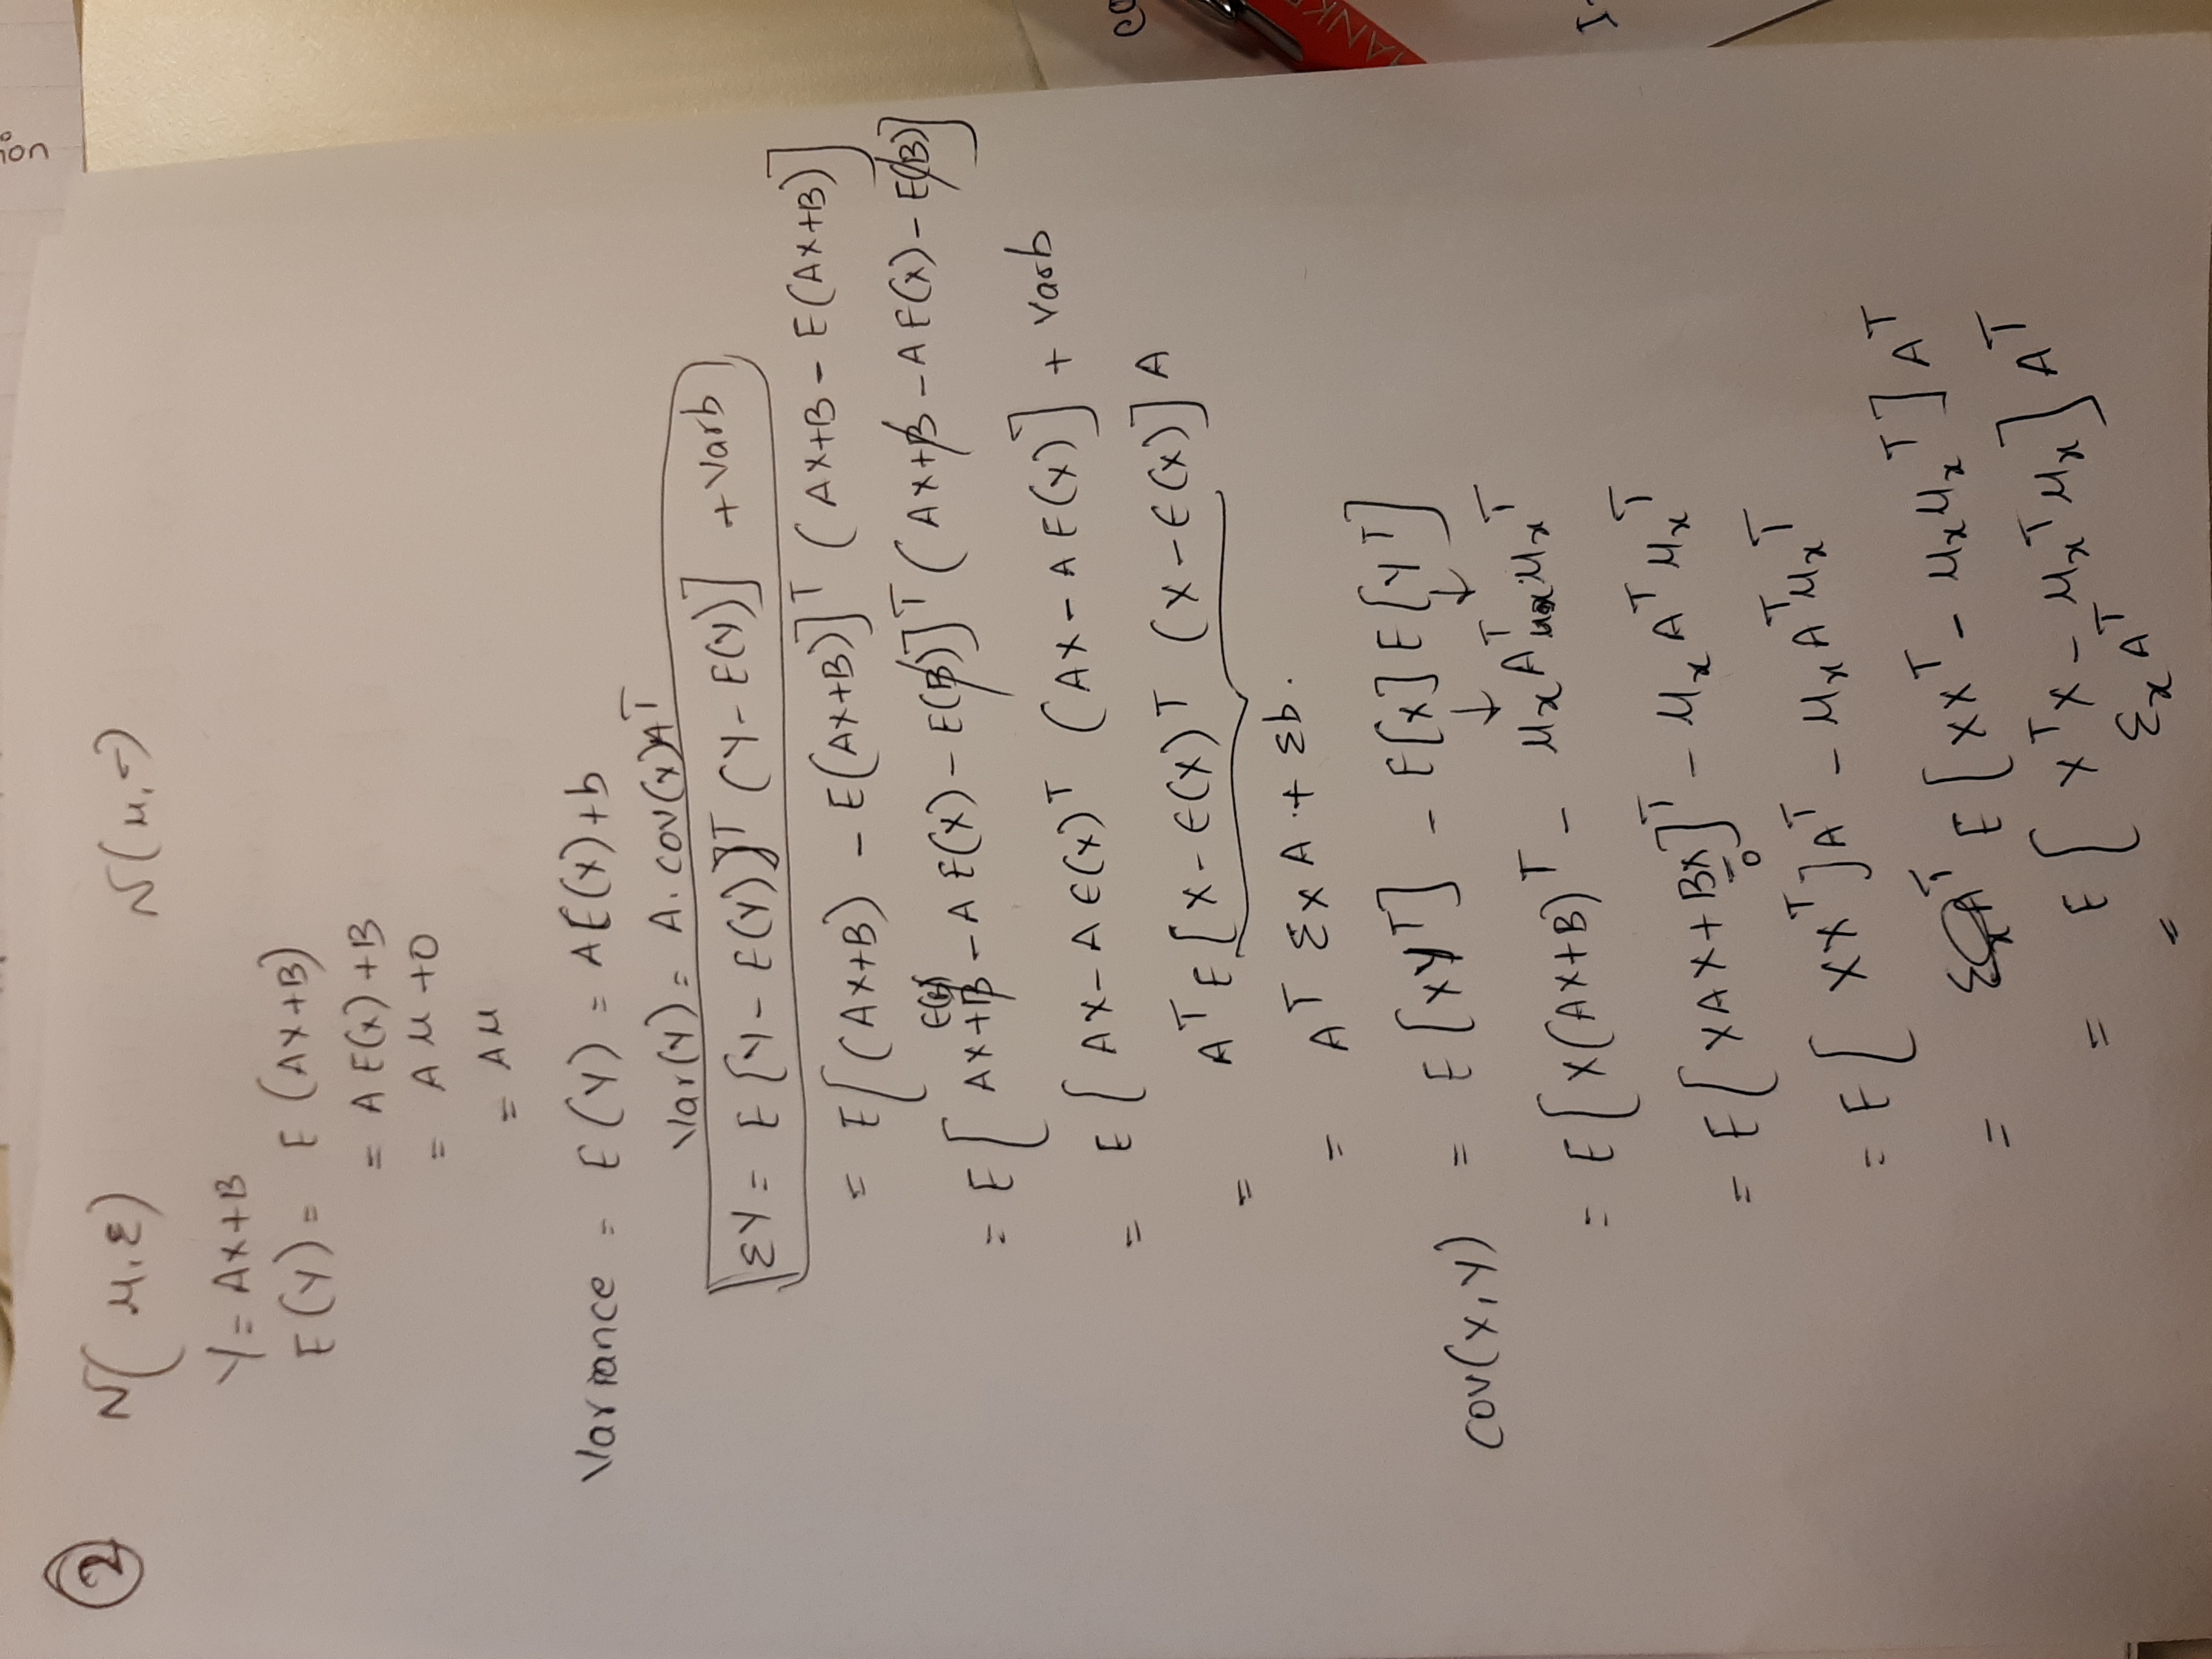 ② N(μ,Σ) N(μ,-)
Y = AX+B
E(Y) = E(AX+B)
= A E(X) + B
= A μ + 0
= A μ
Variance = E(Y) = A E(X) + b
Var(Y) = A. COV(X) A^T
ΣY = E[Y - E(Y)]^T (Y - E(Y)] + Varb
= E[(AX+B) - E(AX+B)]^T (AX+B - E(AX+B)]
= E[AX+B - A E(X) - E(B)]^T (AX+B - A E(X) - E(B)]
= E[AX - A E(X)^T (AX - A E(X)] + Varb
= A^T E[X - E(X)^T (X - E(X)] A
= A^T Σ_X A + Σb.
COV(X,Y) = E[XY^T] - E[X] E[Y^T]
↓ ↓
= E[X(AX+B)^T - μ_x A^T μ_x^T
= E[XAX + BX]^T - μ_x A^T μ_x^T
0
= E[XX^T]A^T - μ_x A^T μ_x^T
= E[XX^T - μ_x μ_x^T] A^T
= E[X^T X - μ_x^T μ_x] A^T
= Σ_x A^T